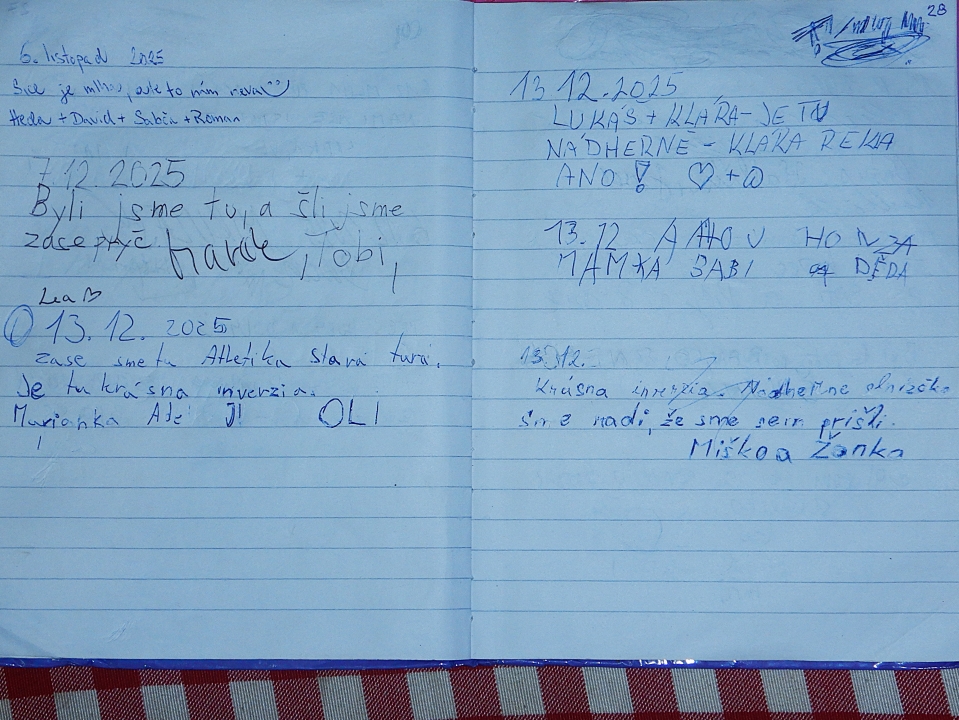 6. listopad 2025
Sice je mlhou, ale to nám nevadí
Heda + David + Sabča + Roman
7.12.2025
Byli jsme tu, a šli jsme
zace pryč Marek, Tobi,
Lea ♡
13.12. 2025
zase sme tu Atletika Stará turá.
Je tu krásna inverzia.
Marianka Ale JJ OLI
28
13 12.2025
LUKÁŠ + KLÁRA - JE TU
NÁDHERNĚ - KLÁRA ŘEKLA
ANO! ♡ +
13.12 A HONZA
MAMKA BABI DĚDA
13.12.
Krásna inverzia. Nádherne slniečko
Sme radi, že sme sem prišli.
Miško a Žanka